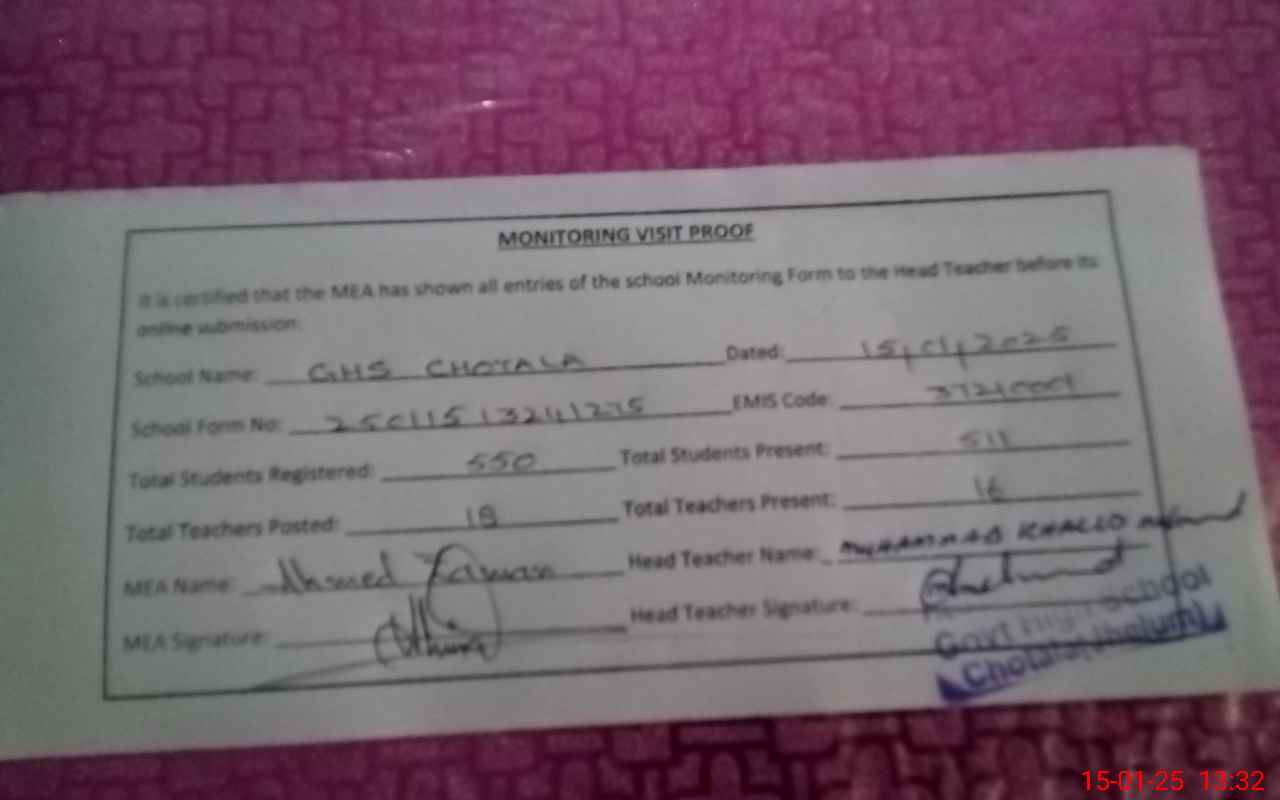 MONITORING VISIT PROOF
It is certified that the MEA has shown all entries of the school Monitoring Form to the Head Teacher before its
online submission:
School Name: GHS CHOTALA Dated: 15,01,2025
School Form No: EMIS Code:
Total Students Registered: 550 Total Students Present: 511
Total Teachers Posted: Total Teachers Present: 16
MEA Name: Head Teacher Name: MUHAMMAD KHALID
MEA Signature: Head Teacher Signature:
Govt High School
Chotala (Jhelum)
15-01-25 13:32